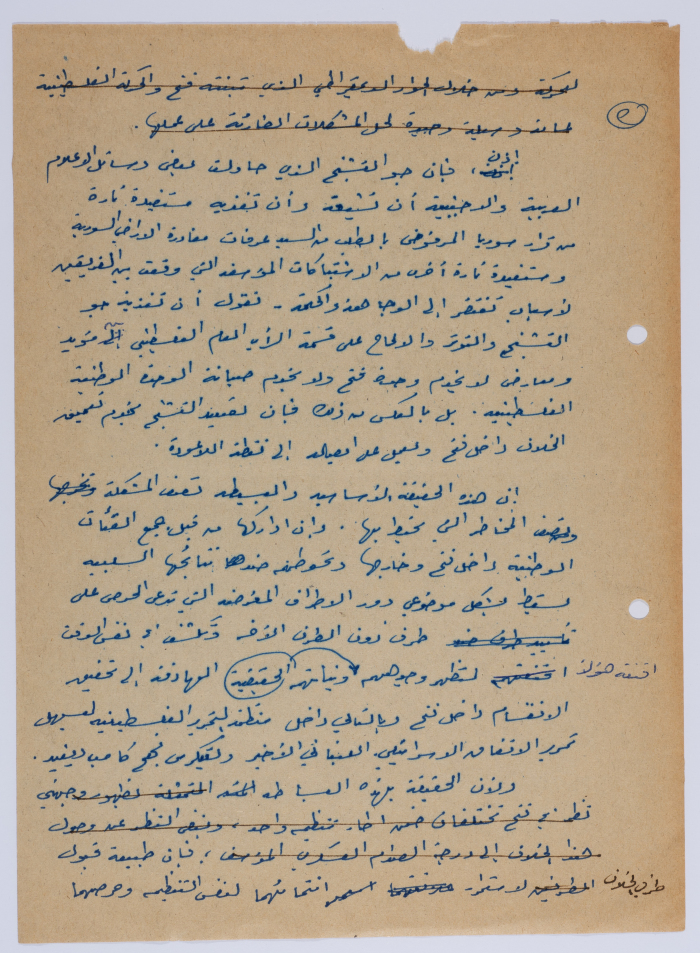 للحركة ومن خلال الحوار الديمقراطي الذي تبنته فتح والحركة الفلسطينية
كمسألة وسيلة وحيدة لحل المشكلات الطارئة على عملها.
٢
إذن، فإن جو التشنج الذي حاولت بعض وسائل الاعلام
العربية والاجنبية أن تشيعه وأن تغذيه مستفيدة تارة
من قرار سوريا المرفوض بالطلب من السيد عرفات مغادرة الاراضي السورية
ومستفيدة تارة أخرى من الاشتباكات المؤسفة التي وقعت بين الفريقين
لأسباب تفتقر إلى الوجاهة والحكمة - نقول أن تغذية جو
التشنج والتوتر والالحاح على قسمة الرأي العام الفلسطيني إلى مؤيد
ومعارض لا يخدم وحدة فتح ولا يخدم صيانة الوحدة الوطنية
الفلسطينية. بل بالعكس من ذلك فإن تصعيد التشنج يخدم تعميق
الخلاف داخل فتح ويعمل على ايصاله إلى نقطة اللاعودة.
إن هذه الحقيقة الأساسية والبسيطة تصف المشكلة
وتصف المخاطر التي تحيط بها. وإن ادراكها من قبل جميع الفئات
الوطنية داخل فتح وخارجها ضد نتائجها السلبية
يسقط بشكل موضوعي دور الاطراف المغرضة التي تدعي الحرص على
تأييد طرف ضد طرف دون الطرف الآخر وتكشف في نفس الوقت
اقنعة هؤلاء لتظهر وجوههم ونياتهم الحقيقية الهادفة إلى تحقيق
الانقسام داخل فتح وبالتالي داخل منظمة التحرير الفلسطينية لتسهيل
تمرير الاتفاق الاسرائيلي اللبناني الأخير وتكريس نهج كامب ديفيد.
ولأن الحقيقة بهذه البساطة المتمثلة بظهور وجهتي
نظر في فتح تختلفان ضمن اطار تنظيم واحد، وبغض النظر عن وصول
هذا الخلاف إلى درجة الصدام العسكري المؤسف، فإن طبيعة قبول
طرفي الخلاف لاستمرار انتمائهما لنفس التنظيم وحرصهما